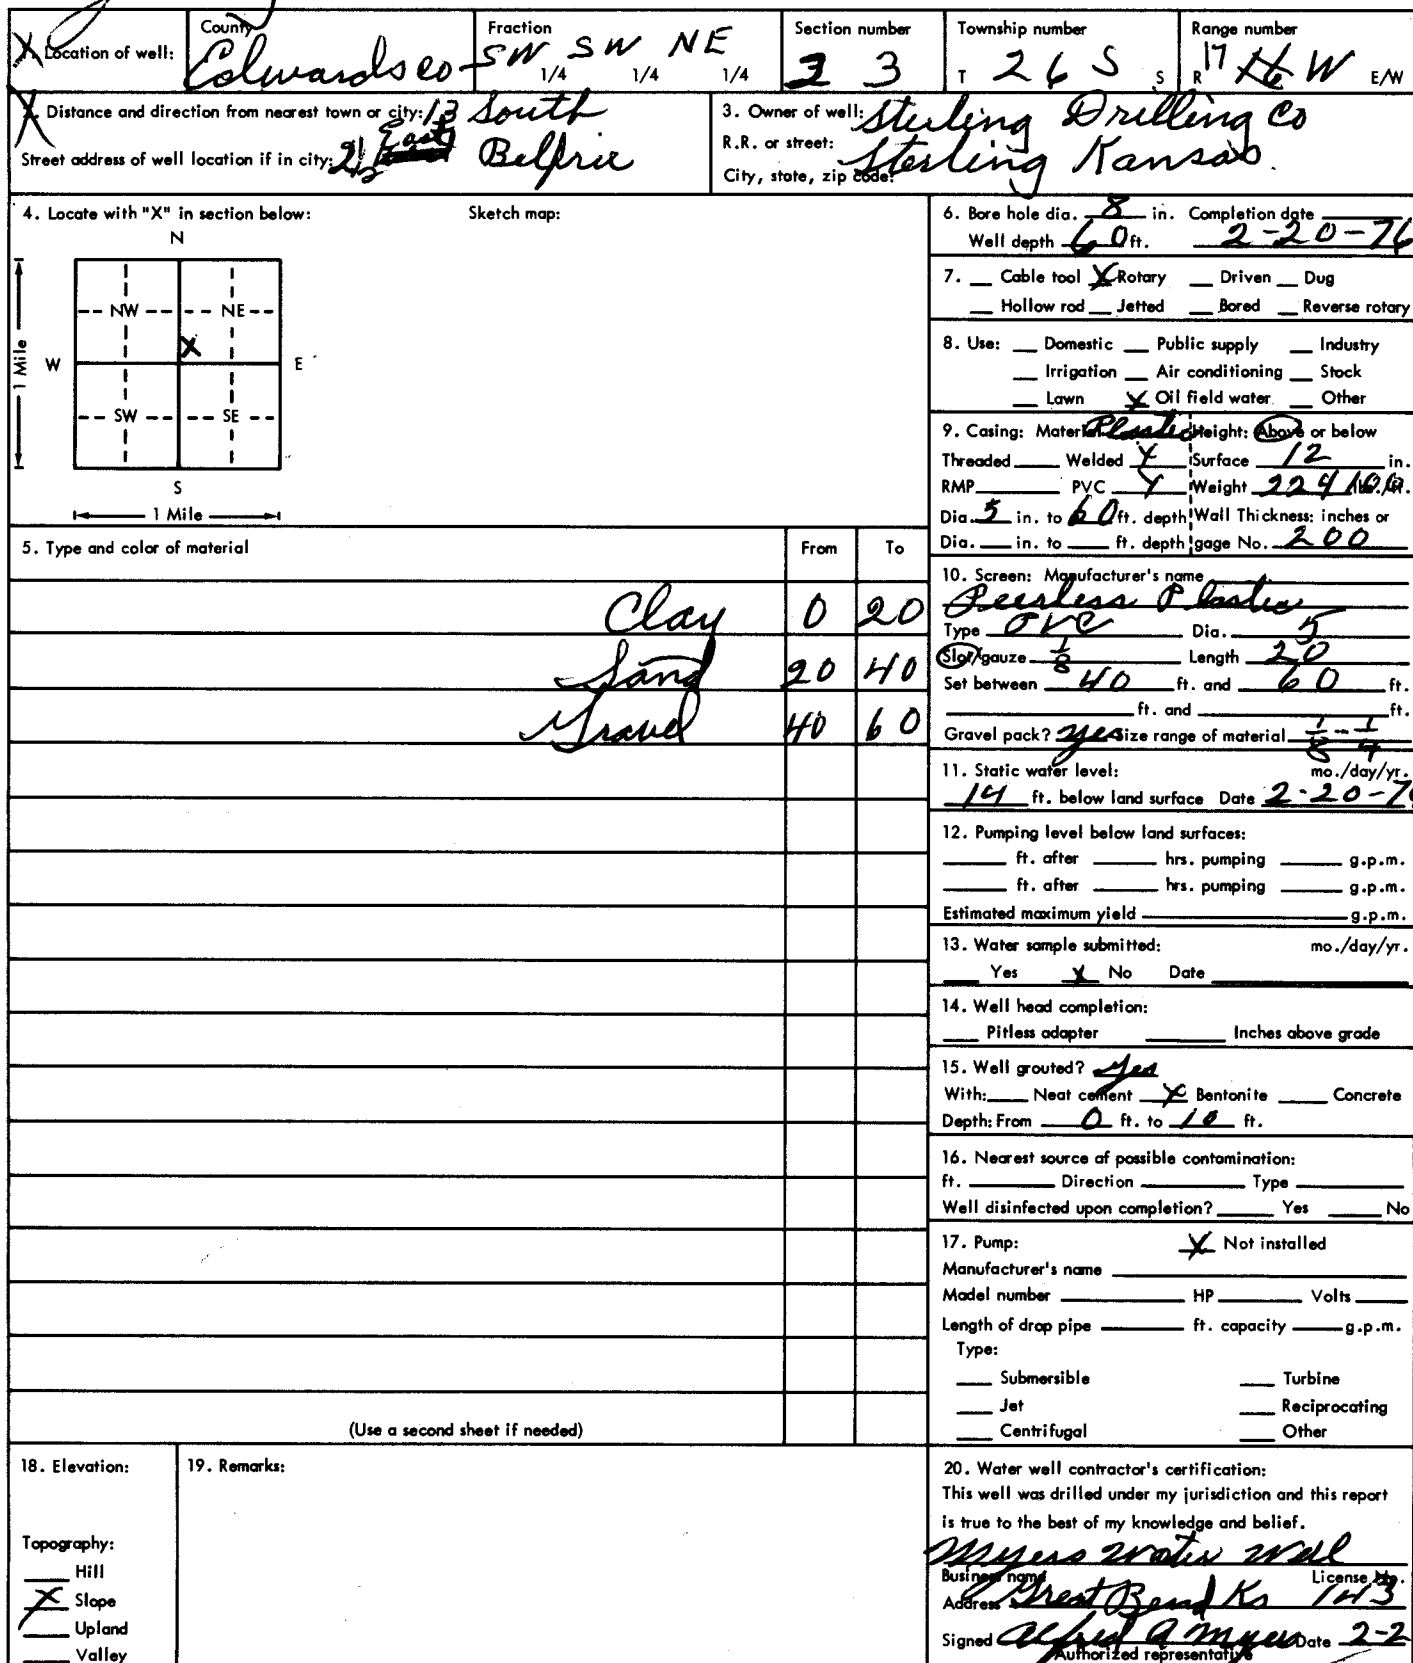 Location of well: County Edwards co Fraction SW SW NE 1/4 1/4 1/4 Section number 3 Township number T 26 S S Range number R 17 W E/W
Distance and direction from nearest town or city: 13 South
Street address of well location if in city: 2½ East Belfrie
3. Owner of well: Sterling Drilling Co
R.R. or street: Sterling Kansas.
City, state, zip code:
4. Locate with "X" in section below: Sketch map:
N
NW NE
X
W E
1 Mile
SW SE
S
1 Mile
5. Type and color of material From To
Clay 0 20
Sand 20 40
Gravel 40 60
(Use a second sheet if needed)
6. Bore hole dia. 8 in. Completion date
Well depth 60 ft. 2-20-76
7. Cable tool X Rotary Driven Dug
Hollow rod Jetted Bored Reverse rotary
8. Use: Domestic Public supply Industry
Irrigation Air conditioning Stock
Lawn X Oil field water Other
9. Casing: Material Plastic Height: Above or below
Threaded Welded X Surface 12 in.
RMP PVC X Weight
Dia. 5 in. to 60 ft. depth Wall Thickness: inches or
Dia. in. to ft. depth gage No. 200
10. Screen: Manufacturer's name
Peerless Plastic
Type PVC Dia. 5
Slot/gauze 1/8 Length 20
Set between 40 ft. and 60 ft.
ft. and ft.
Gravel pack? yes Size range of material 1/8 -
11. Static water level: mo./day/yr.
14 ft. below land surface Date 2-20-76
12. Pumping level below land surfaces:
ft. after hrs. pumping g.p.m.
ft. after hrs. pumping g.p.m.
Estimated maximum yield g.p.m.
13. Water sample submitted: mo./day/yr.
Yes X No Date
14. Well head completion:
Pitless adapter Inches above grade
15. Well grouted? Yes
With: Neat cement X Bentonite Concrete
Depth: From 0 ft. to 10 ft.
16. Nearest source of possible contamination:
ft. Direction Type
Well disinfected upon completion? Yes No
17. Pump: X Not installed
Manufacturer's name
Model number HP Volts
Length of drop pipe ft. capacity g.p.m.
Type:
Submersible Turbine
Jet Reciprocating
Centrifugal Other
18. Elevation: 19. Remarks:
Topography:
Hill
X Slope
Upland
Valley
20. Water well contractor's certification:
This well was drilled under my jurisdiction and this report
is true to the best of my knowledge and belief.
Myers Water Well
Business name License No.
Address Great Bend Ks 143
Signed Alfred A Myers Date 2-2
Authorized representative